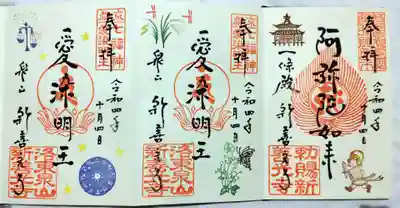 奉拝
阿弥陀如来
一條殿
新善光寺
令和四年
十月四日
勅賜新
善光寺
奉拝
愛染明王
泉山
新善光寺
令和四年
十月四日
洛東泉山
奉拝
愛染明王
泉山
新善光寺
令和四年
十月四日
洛東泉山